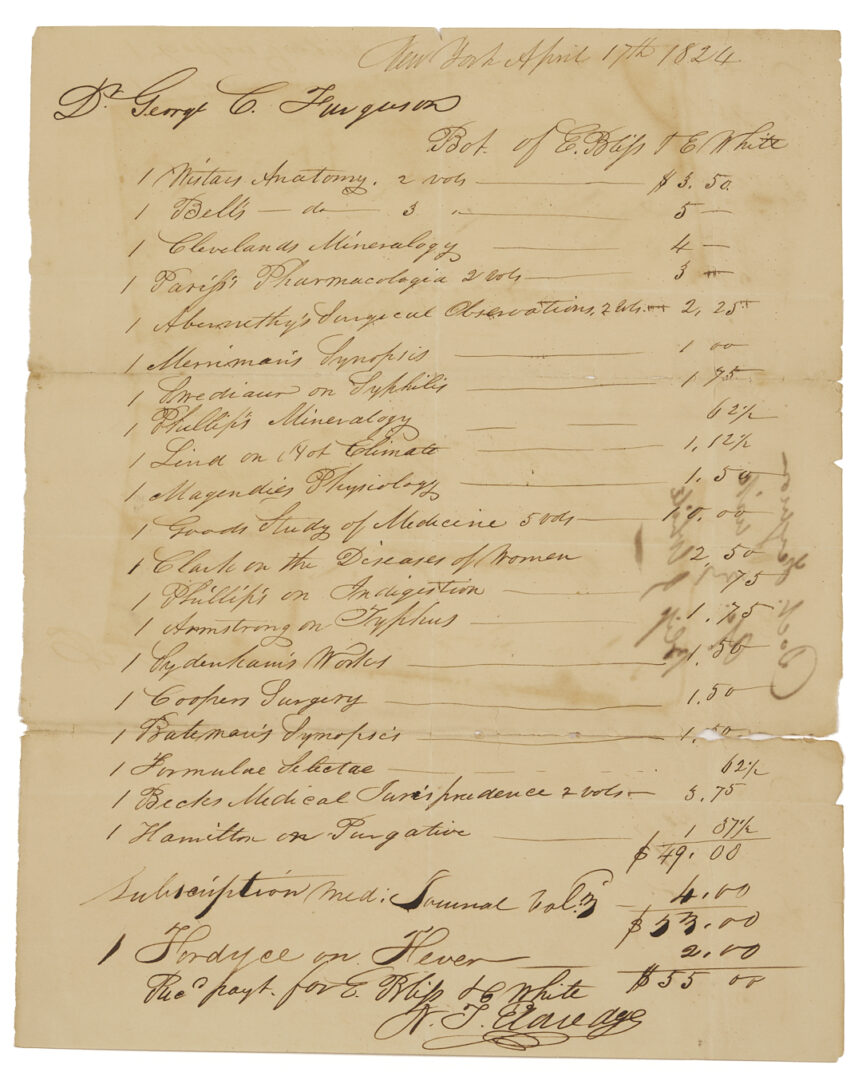 New York April 17th 1824
Dr. George C. Ferguson
Bot. of E. Bliss & E White
1 Wistars Anatomy. 2 vols $3.50
1 Bell's — do — 3 " 5 —
1 Clevelands Mineralogy 4 —
1 Pariss's Pharmacologia 2 vols 3 "
1 Abernethy's Surgical Observations, 2 vols. 2,25
1 Merriman's Synopsis 1 00
1 Swediaur on Syphilis 1 75
1 Phillip's Mineralogy 62½
1 Lind on Hot Climate 1,12½
1 Magendies Physiology 1.50
1 Goods Study of Medicine 5 vols 10.00
1 Clark on the Diseases of Women 2,50
1 Phillip's on Indigestion 75
1 Armstrong on Typhus 1.75
1 Sydenham's Works 1,50
1 Coopers Surgery 1,50
1 Bateman's Synopsis 1,50
1 Formulae Selectae 62½
1 Becks Medical Jurisprudence 2 vols 3.75
1 Hamilton on Purgative 1 37½
$49.00
Subscription Med: Journal Vol. 3 4.00
$53.00
1 Fordyce on Fever 2.00
$55 00
Rec'd payt. for E. Bliss & E White